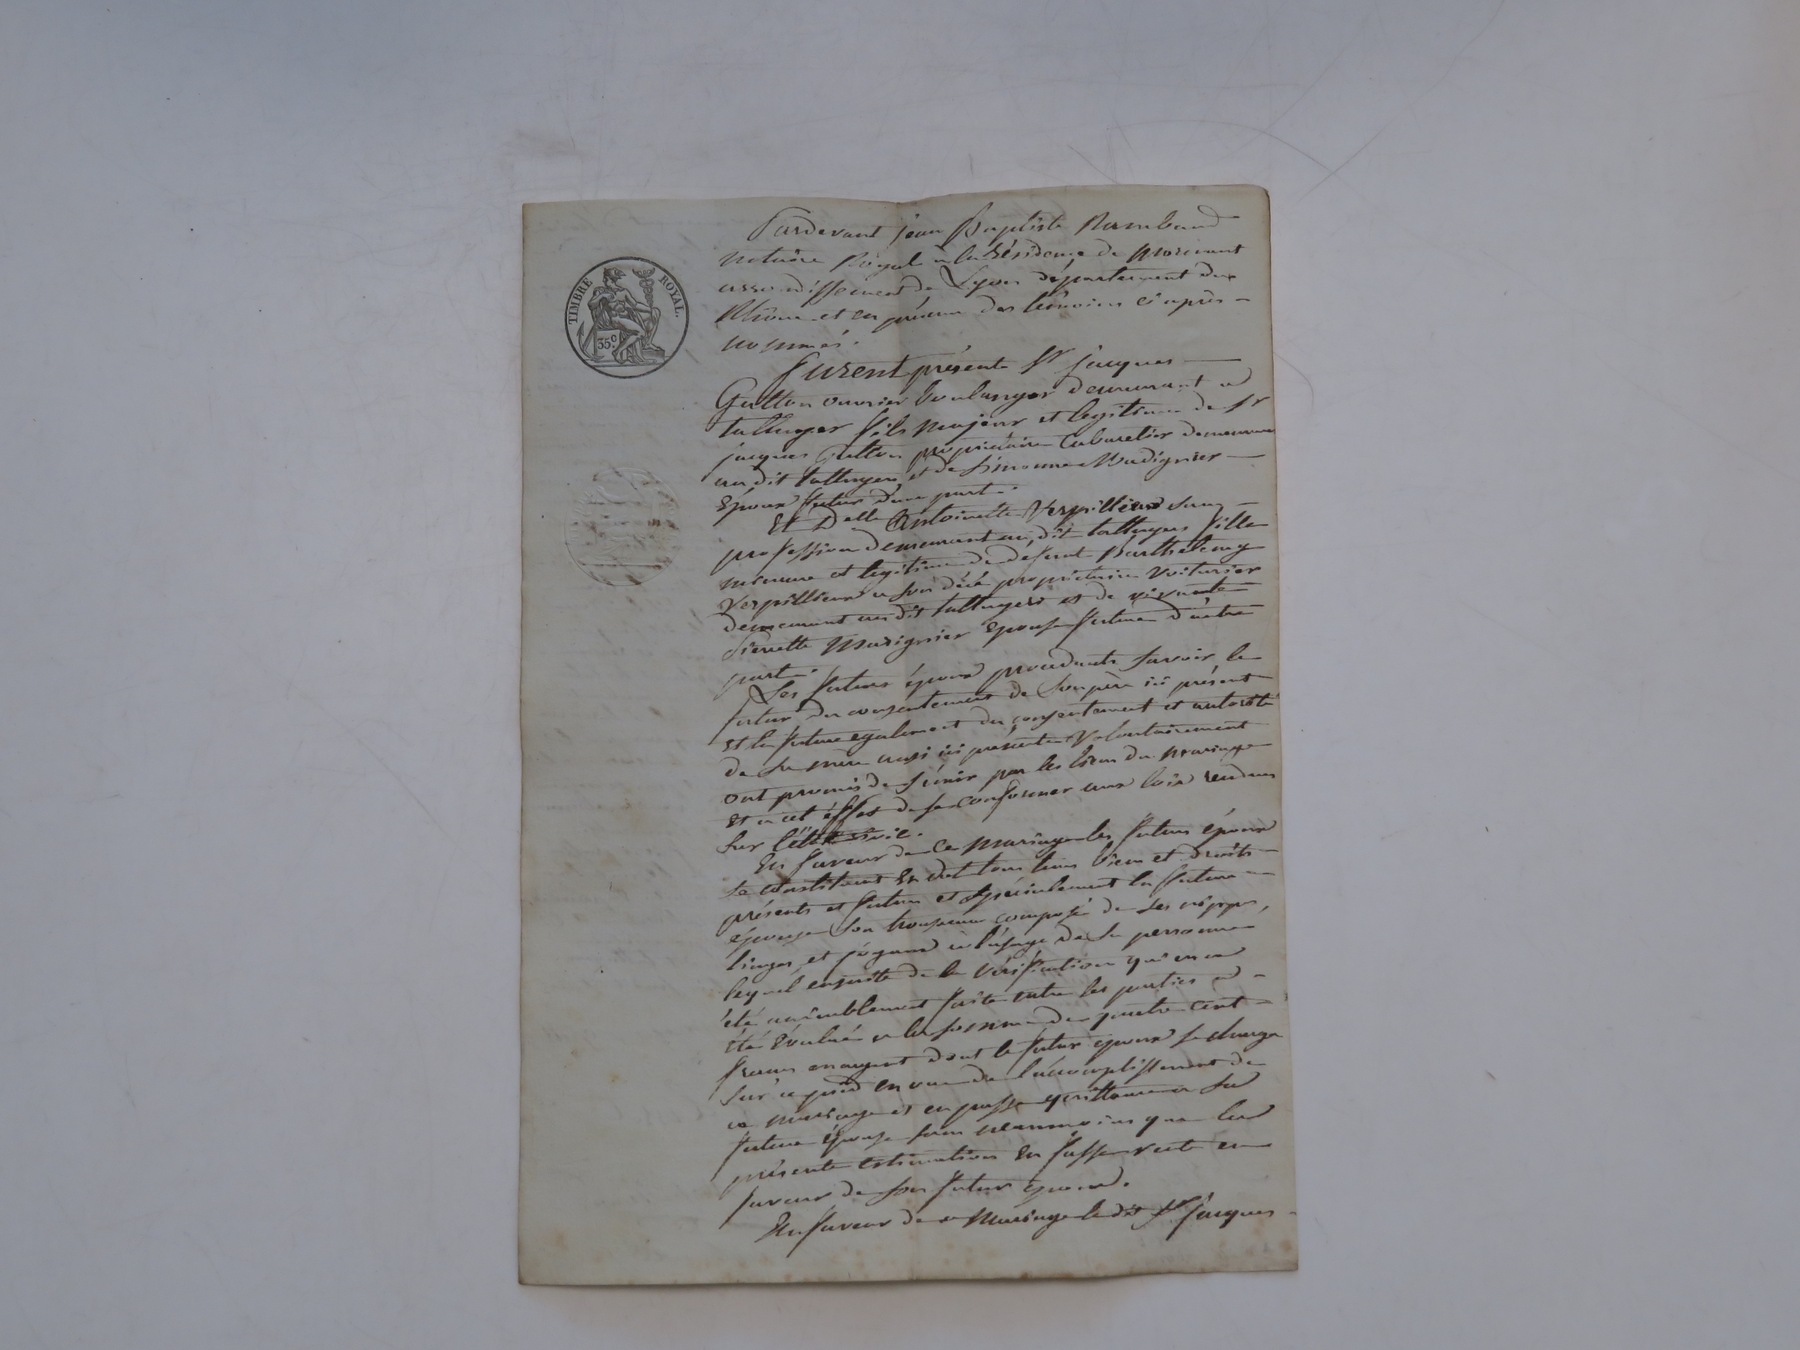 TIMBRE ROYAL.
35c.
Pardevant jean Baptiste Rambaud
notaire Royal à la Résidence de Mornant
arrondissement de Lyon département du
Rhône et en présence des témoins ci après
nommés.
Furent présents Sr jacques
ouvrier boulanger demeurant à
talluyer fils majeur et legitime de Sr
jacques propriétaire Cabaretier demeurant
au dit talluyers et de Simonne Madignier
Epoux futur d'une part.
Et Delle Antoinette Verpillieux sans
profession demeurant au dit talluyers fille
mineure et legitime de defunt Barthelemy
Verpillieux à son décé propriétaire voiturier
demeurant au dit talluyers et de vivante
Pierrette Madignier Epouse future d'autre
part.
Les futurs époux procédants savoir le
futur du consentement de son père ici présent
Et la future egalement du consentement et autorité
de sa mère aussi ici présente volontairement
ont promis de s'unir par les liens du mariage
Et à cet éffet de se conformer aux loix rendues
sur l'état civil.
En faveur de ce mariage les futurs époux
se constituent En dot tous leurs biens et droits
présents et futurs et spécialement la future
épouse son trousseau composé de ses nippes,
linges et joyaux à l'usage de sa personne
lequel ensuite de la vérification qui en a
été amiablement faite entre les parties a
été évalué à la somme de quatre cent
francs en argent dont le futur époux se charge
sur ce pied en vue de l'accomplissement de
ce mariage et en passe quittance à sa
future épouse sans néanmoins que la
présente estimation En fasse vente en
faveur de son futur époux.
En faveur de ce mariage le dit Sr jacques